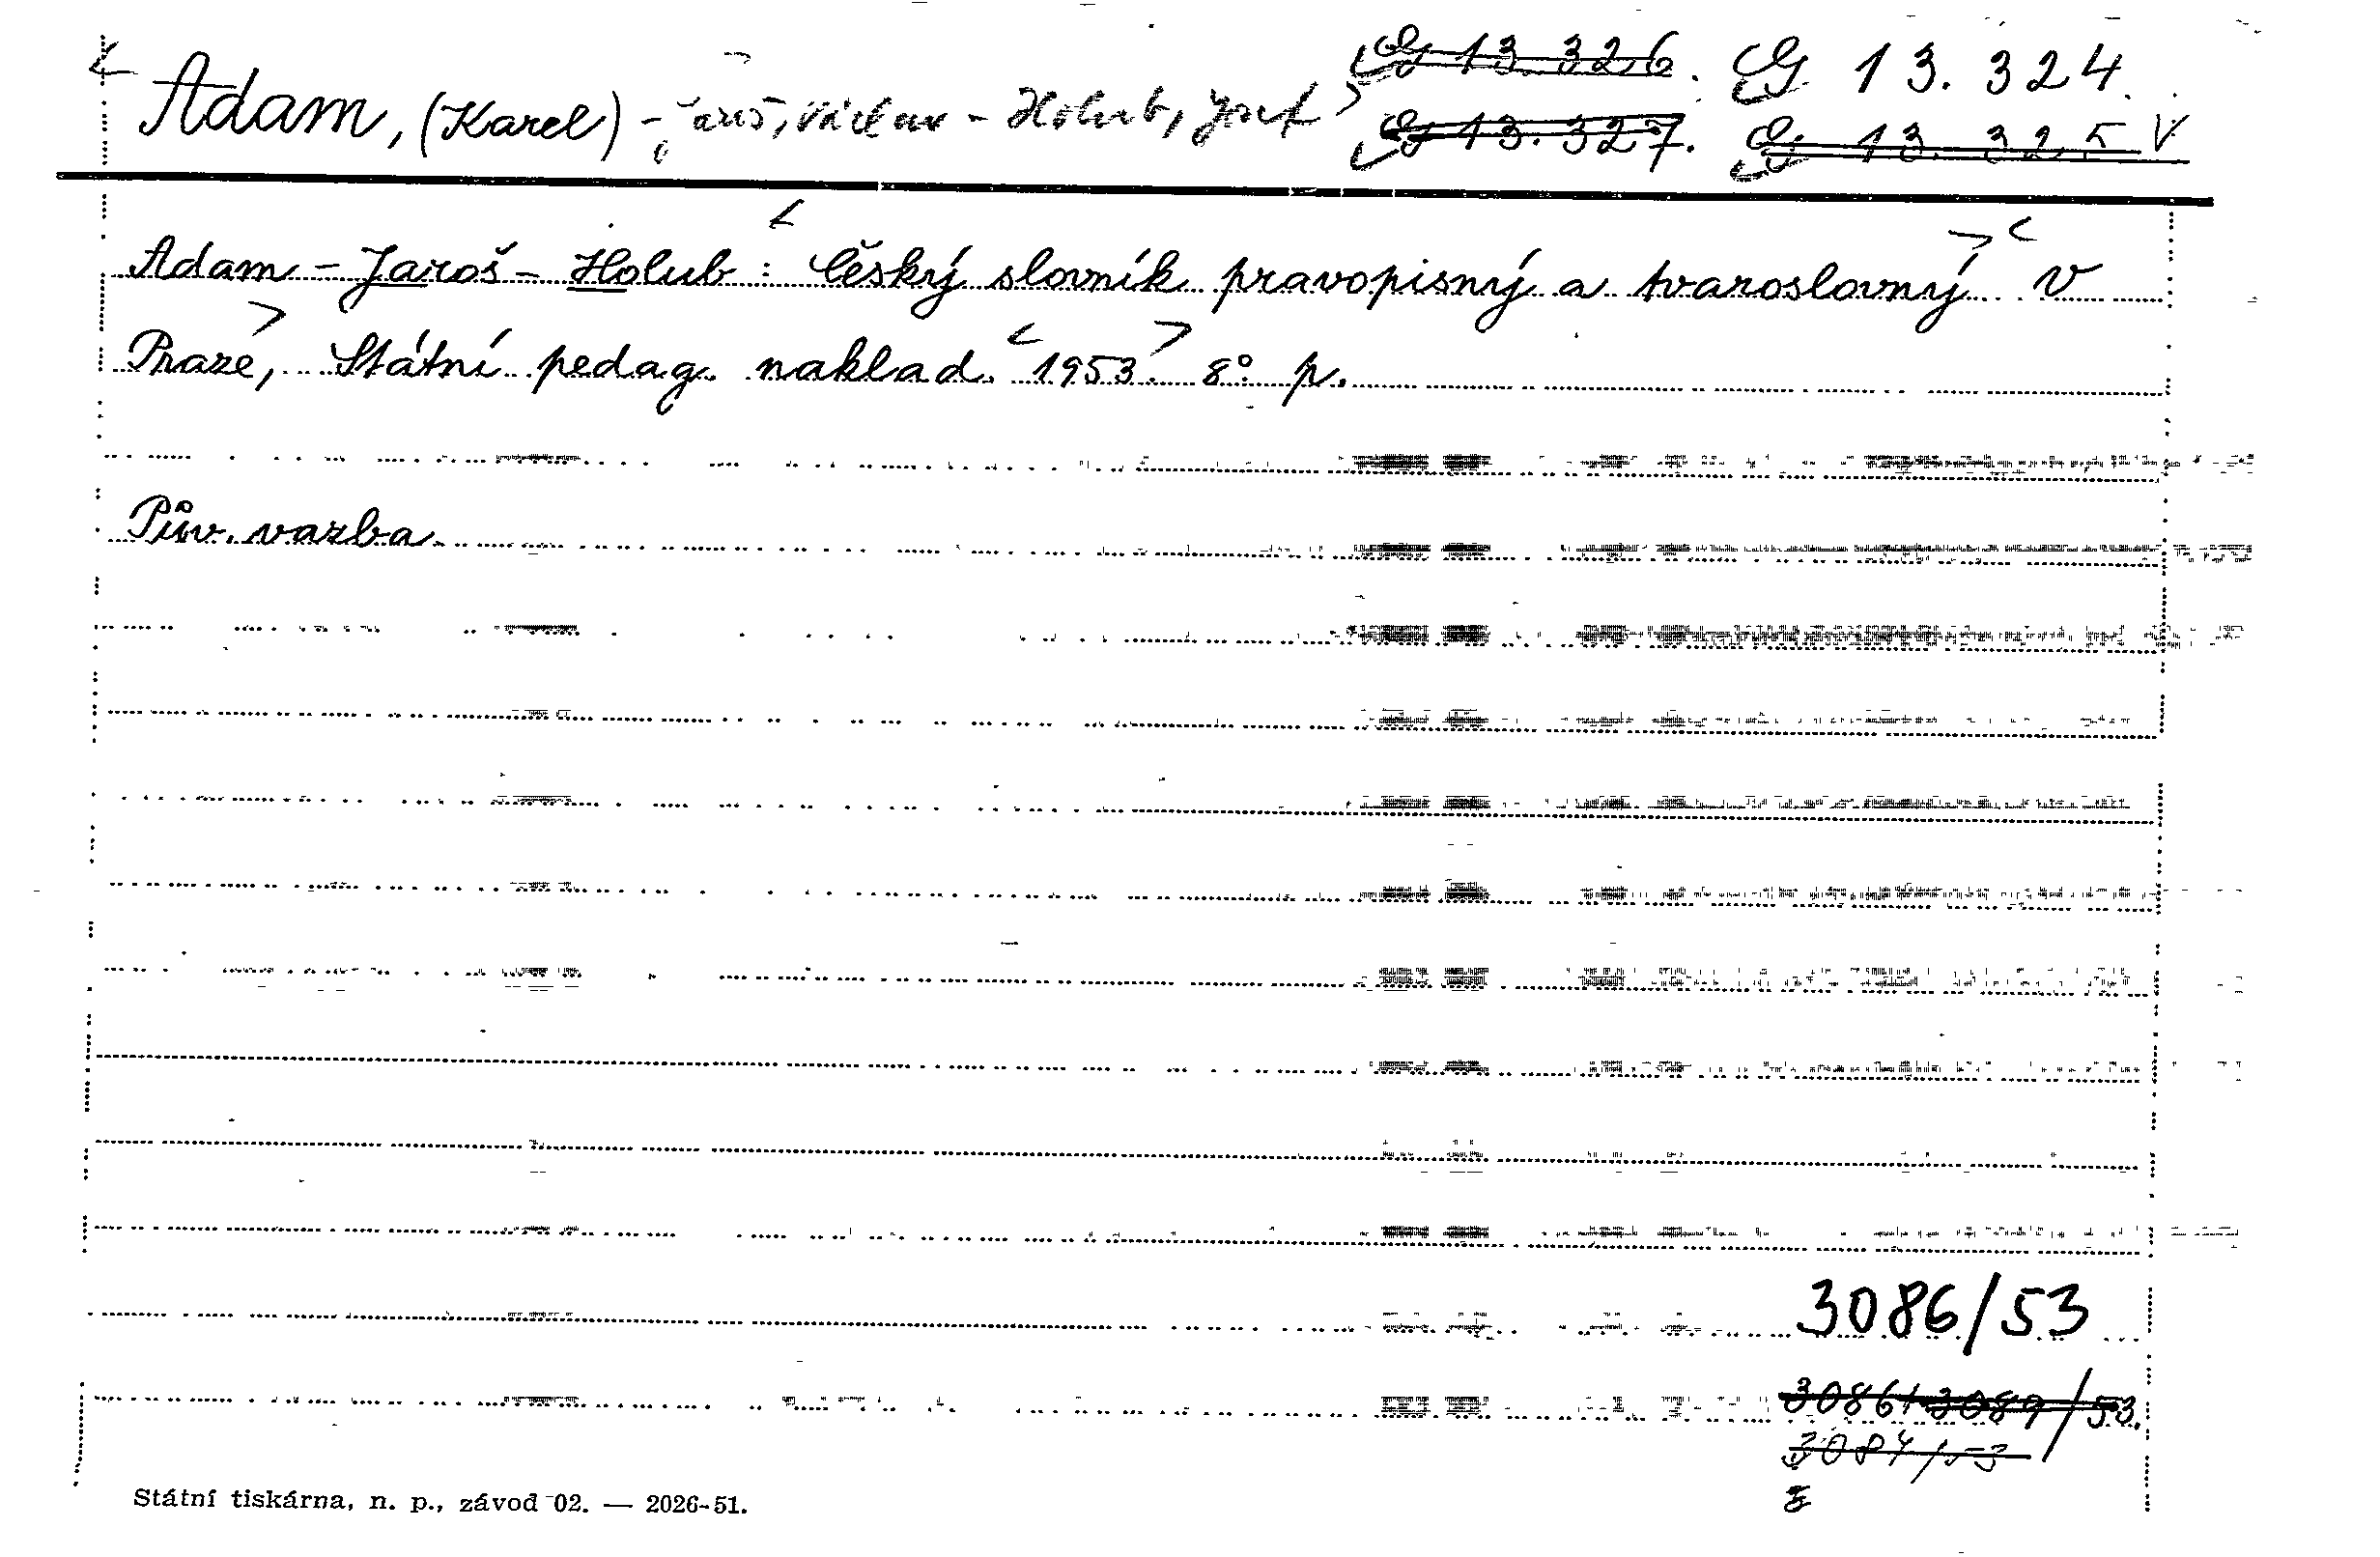 Adam, (Karel) - Jaroš, Václav - Holub, Josef
G 13.326. G 13.324
G 13.327. G 13.325 V
Adam - Jaroš - Holub: Český slovník pravopisný a tvaroslovný V
Praze, Státní pedag. naklad. 1953. 8° p.
Pův. vazba
3086/53
3086/3089/53.
3087/53
Státní tiskárna, n. p., závod 02. — 2026-51.